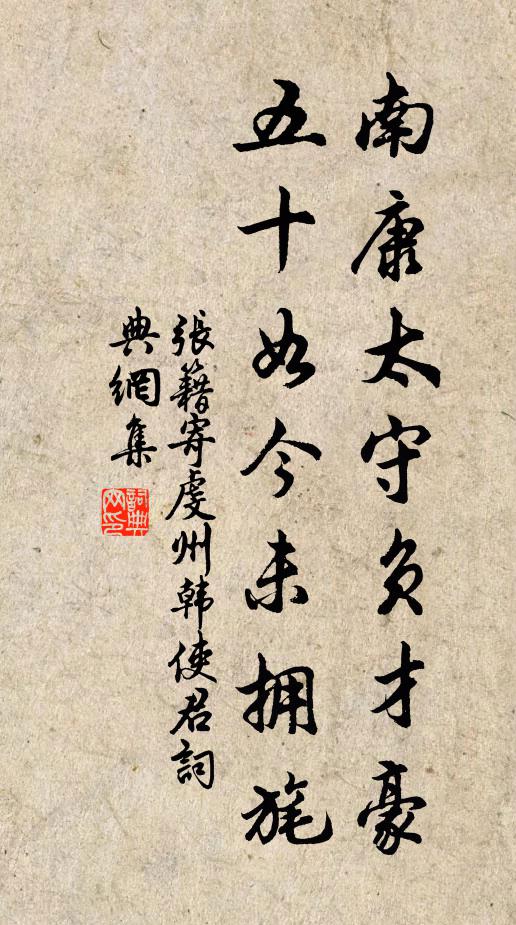 南康太守负才豪
五十如今未拥旄
張籍寄虔州韩使君詞
典網集
詞典
网印